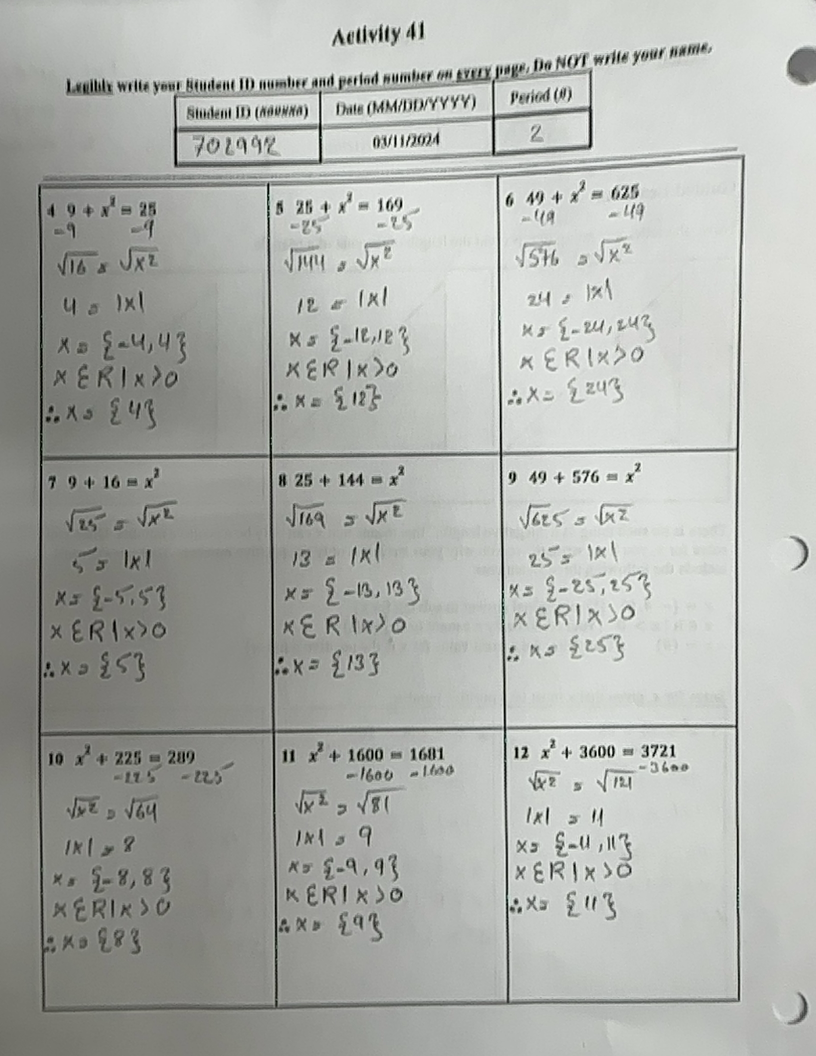 Activity 41
Legibly write your Student ID number and period number on every page. Do NOT write your name.
Student ID (######) Date (MM/DD/YYYY) Period (#)
702992 03/11/2024 2
4 9 + x² = 25
-9 -9
√16 = √x²
4 = |x|
x = {-4, 4}
x ∈ R | x > 0
∴ x = {4}
5 25 + x² = 169
-25 -25
√144 = √x²
12 = |x|
x = {-12, 12}
x ∈ R | x > 0
∴ x = {12}
6 49 + x² = 625
-49 -49
√576 = √x²
24 = |x|
x = {-24, 24}
x ∈ R | x > 0
∴ x = {24}
7 9 + 16 = x²
√25 = √x²
5 = |x|
x = {-5, 5}
x ∈ R | x > 0
∴ x = {5}
8 25 + 144 = x²
√169 = √x²
13 = |x|
x = {-13, 13}
x ∈ R | x > 0
∴ x = {13}
9 49 + 576 = x²
√625 = √x²
25 = |x|
x = {-25, 25}
x ∈ R | x > 0
∴ x = {25}
10 x² + 225 = 289
-225 -225
√x² = √64
|x| = 8
x = {-8, 8}
x ∈ R | x > 0
∴ x = {8}
11 x² + 1600 = 1681
-1600 -1600
√x² = √81
|x| = 9
x = {-9, 9}
x ∈ R | x > 0
∴ x = {9}
12 x² + 3600 = 3721
-3600
√x² = √121
|x| = 11
x = {-11, 11}
x ∈ R | x > 0
∴ x = {11}